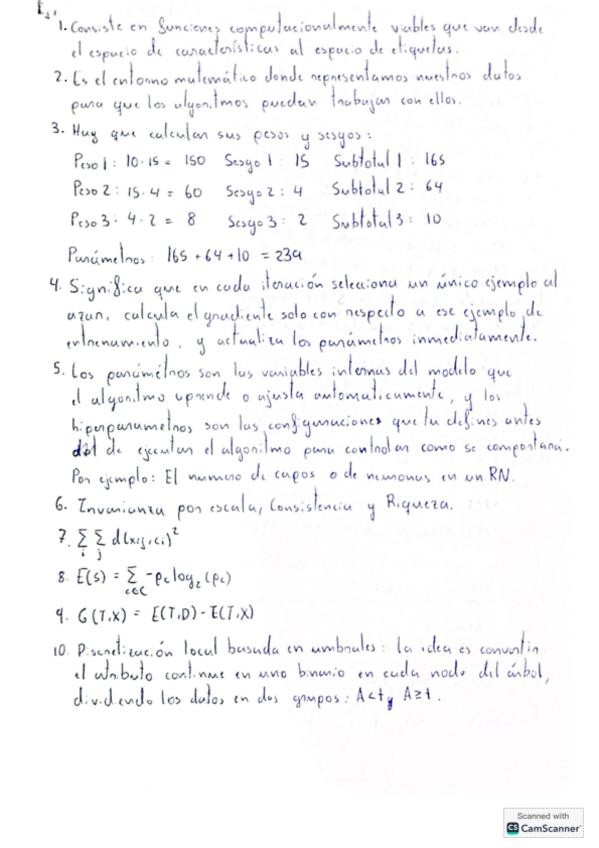 1. Consiste en funciones computacionalmente viables que van desde
el espacio de características al espacio de etiquetas.
2. Es el entorno matemático donde representamos nuestros datos
para que los algoritmos puedan trabajar con ellos.
3. Hay que calcular sus pesos y sesgos:
Peso 1: 10·15 = 150 Sesgo 1: 15 Subtotal 1: 165
Peso 2: 15·4 = 60 Sesgo 2: 4 Subtotal 2: 64
Peso 3: 4·2 = 8 Sesgo 3: 2 Subtotal 3: 10
Parámetros: 165 + 64 + 10 = 239
4. Significa que en cada iteración selecciona un único ejemplo al
azar, calcula el gradiente solo con respecto a ese ejemplo de
entrenamiento, y actualiza los parámetros inmediatamente.
5. Los parámetros son las variables internas del modelo que
el algoritmo aprende o ajusta automaticamente, y los
hiperparametros son las configuraciones que tu defines antes
de ejecutar el algoritmo para controlar como se comportará.
Por ejemplo: El numero de capas o de neuronas en un RN.
6. Invarianza por escala, Consistencia y Riqueza.
7. Σ_i Σ_j d(x_ij, c_i)²
8. E(S) = Σ_{c∈C} -p_c log₂(p_c)
9. G(T,X) = E(T,D) - E(T,X)
10. Discretización local basada en umbrales: la idea es convertir
el atributo continuo en uno binario en cada nodo del árbol,
dividiendo los datos en dos grupos: A<t y A≥t.
Scanned with
CS CamScanner